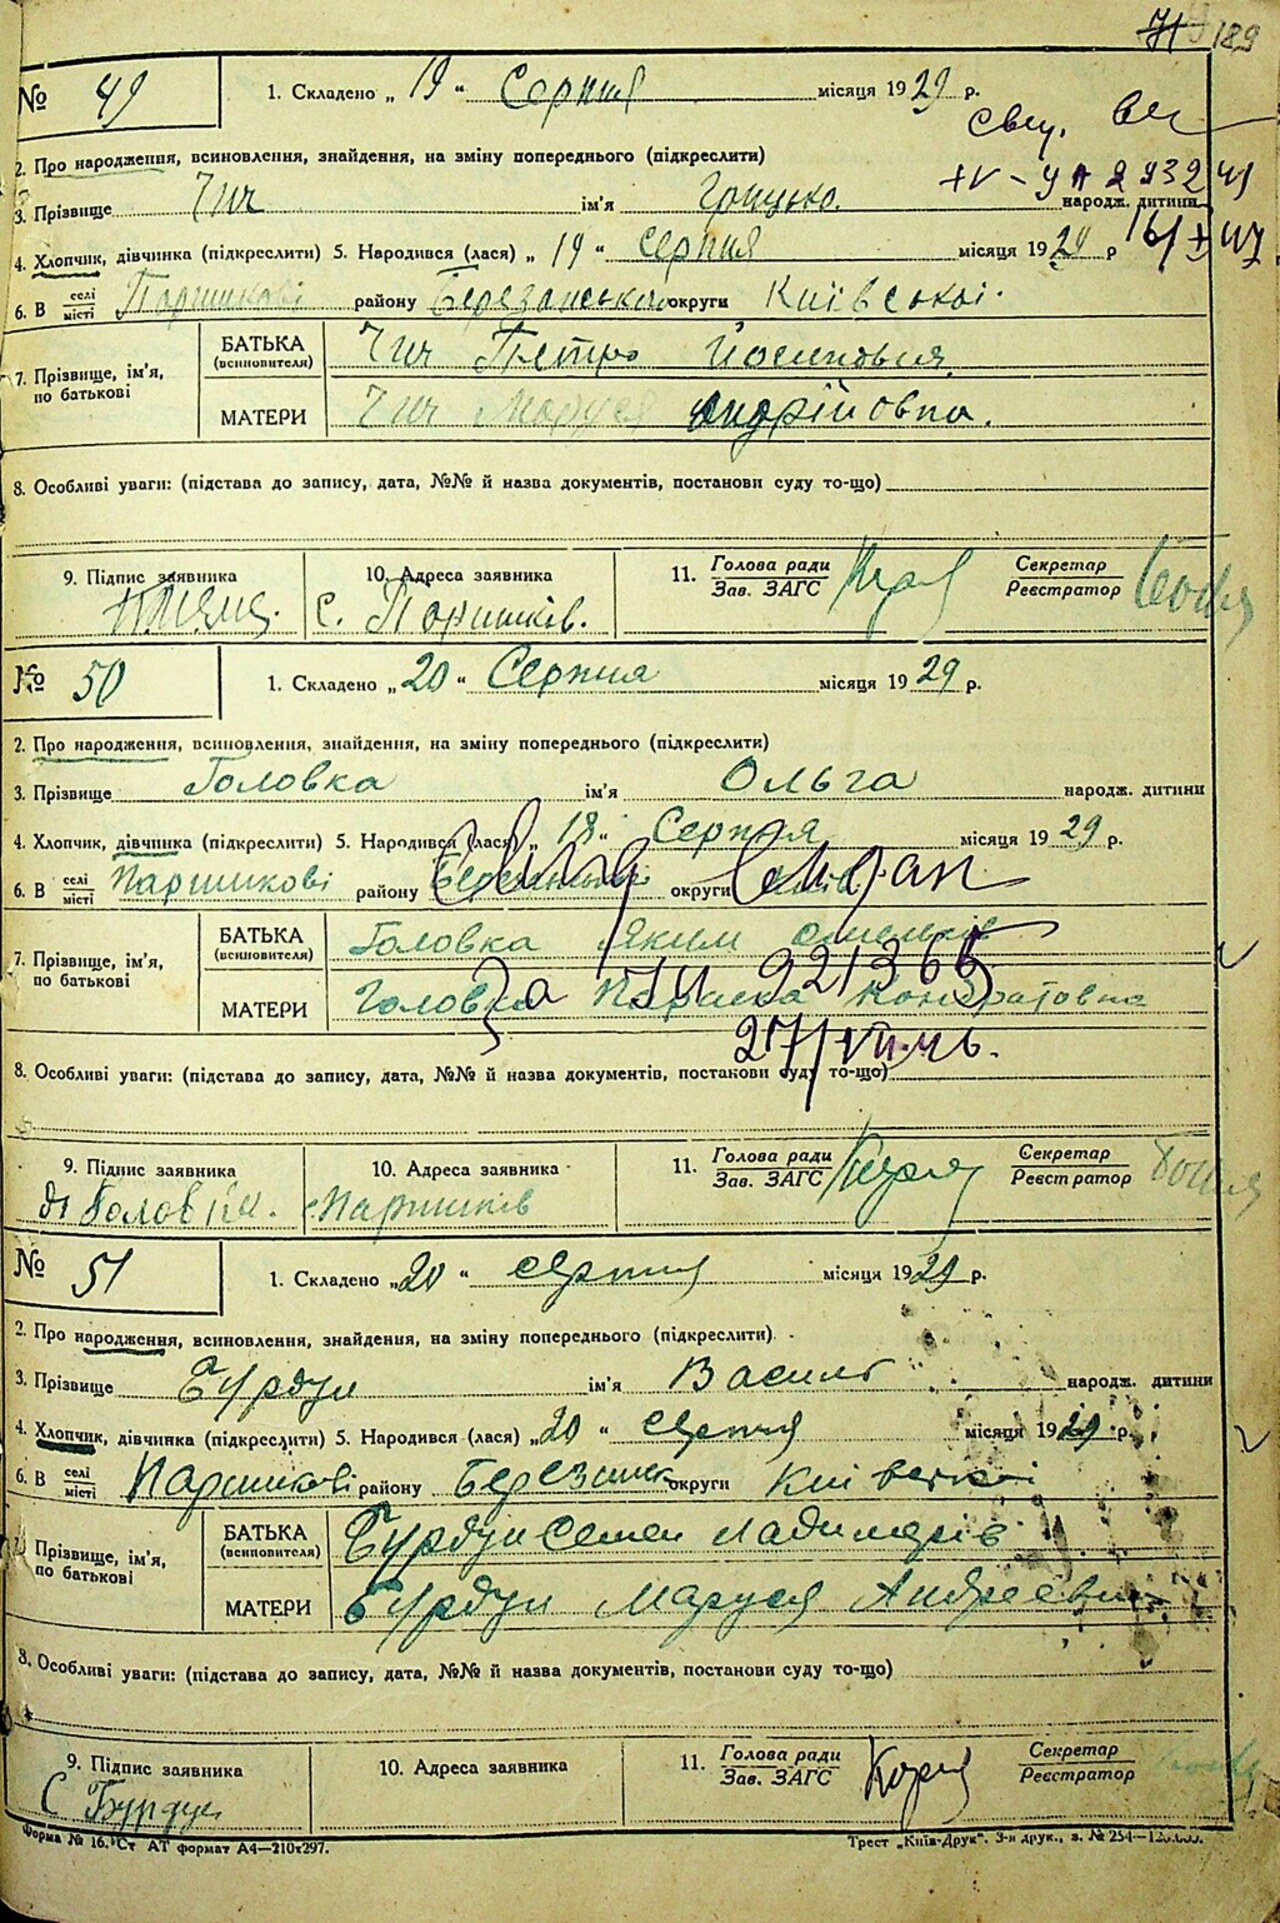 71 189
№ 49 1. Складено „ 19 “ Серпня місяця 1929 р.
свид.
2. Про народження, всиновлення, знайдення, на зміну попереднього (підкреслити)
3. Прізвище Чич ім'я Грицько. народж. дитини
4. Хлопчик, дівчинка (підкреслити) 5. Народився (лася) „ 19 “ серпня місяця 1929 р
6. В селі місті Паришкові району Березанськ округи Київської.
7. Прізвище, ім'я, по батькові
БАТЬКА (всиновителя) Чич Петро Йосипович
МАТЕРИ Чич Маруся Андрійовна.
8. Особливі уваги: (підстава до запису, дата, №№ й назва документів, постанови суду то-що)
9. Підпис заявника 10. Адреса заявника 11. Голова ради Зав. ЗАГС Секретар Реєстратор
с. Паришків.
№ 50 1. Складено „ 20 “ Серпня місяця 1929 р.
2. Про народження, всиновлення, знайдення, на зміну попереднього (підкреслити)
3. Прізвище Головка ім'я Ольга народж. дитини
4. Хлопчик, дівчинка (підкреслити) 5. Народився (лася) „ 18 “ Серпня місяця 1929 р.
6. В селі місті Паришкові району округи
7. Прізвище, ім'я, по батькові
БАТЬКА (всиновителя) Головка Яким
МАТЕРИ Головка Параска Кондратовна
921365
27/VII.46.
8. Особливі уваги: (підстава до запису, дата, №№ й назва документів, постанови суду то-що)
9. Підпис заявника 10. Адреса заявника 11. Голова ради Зав. ЗАГС Секретар Реєстратор
Головка. с. Паришків
№ 51 1. Складено „ 20 “ серпня місяця 1929 р.
2. Про народження, всиновлення, знайдення, на зміну попереднього (підкреслити)
3. Прізвище Бурдун ім'я Василь народж. дитини
4. Хлопчик, дівчинка (підкреслити) 5. Народився (лася) „ 20 “ серпня місяця 1929 р.
6. В селі місті Паришкові району Березанск округи Київської
Прізвище, ім'я, по батькові
БАТЬКА (всиновителя) Бурдун Семен Ладимерів
МАТЕРИ Бурдун Маруся Андреевна
8. Особливі уваги: (підстава до запису, дата, №№ й назва документів, постанови суду то-що)
9. Підпис заявника 10. Адреса заявника 11. Голова ради Зав. ЗАГС Секретар Реєстратор
С Бурдун
Форма № 16. Ст АТ формат А4—210x297. Трест „Київ-Друк“. 3-я друк., з. № 254—